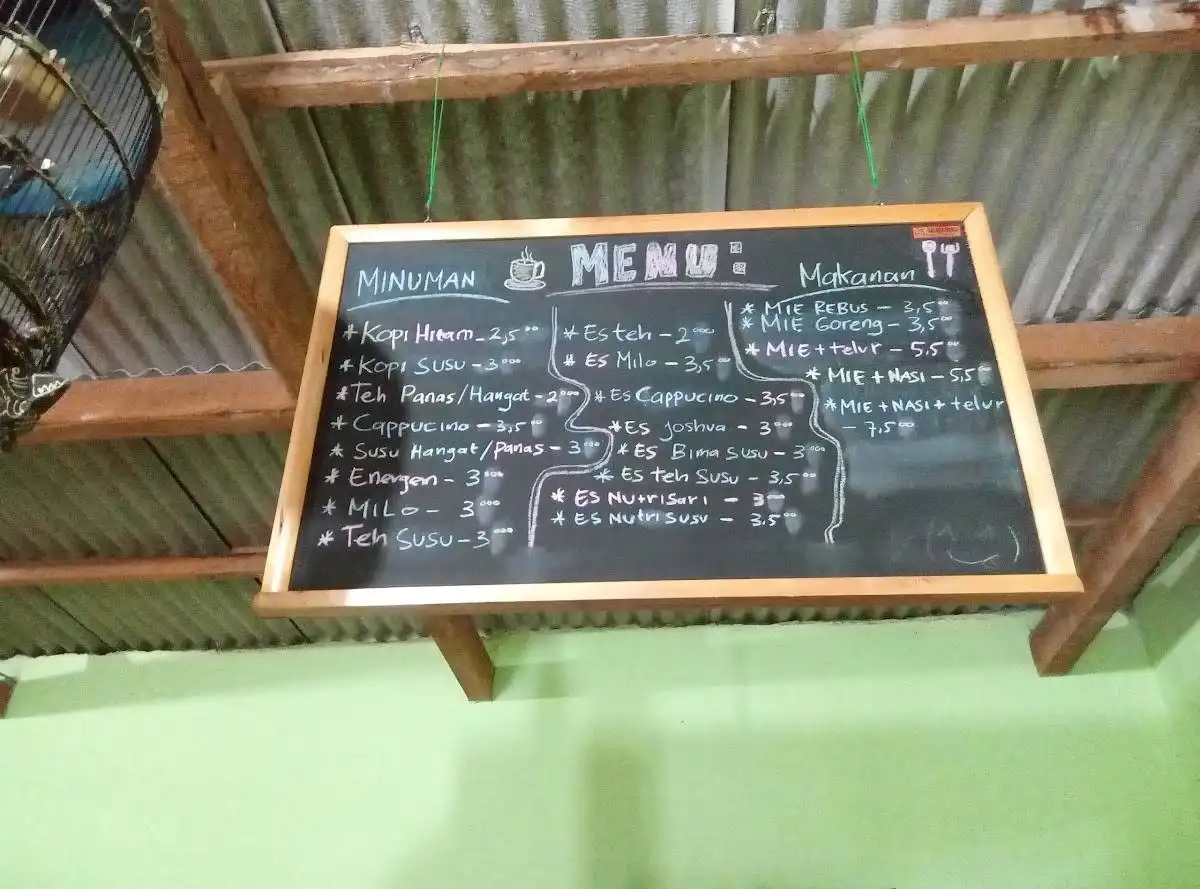 MENU:
MINUMAN
* Kopi Hitam - 2,5⁰⁰
* Kopi SUSU - 3⁰⁰⁰
* Teh Panas/Hangat - 2⁰⁰⁰
* Cappucino - 3,5⁰⁰
* Susu Hangat/panas - 3⁰⁰⁰
* Energen - 3⁰⁰⁰
* MILO - 3⁰⁰⁰
* Teh SUSU - 3⁰⁰⁰
* Es teh - 2⁰⁰⁰
* ES Milo - 3,5⁰⁰
* Es Cappucino - 3,5⁰⁰
* Es Joshua - 3⁰⁰⁰
* ES Bima SUSU - 3⁰⁰⁰
* Es teh SUSU - 3,5⁰⁰
* ES NutriSari - 3⁰⁰⁰
* ES Nutri SUSU - 3,5⁰⁰
Makanan
* MIE REBUS - 3,5⁰⁰
* MIE Goreng - 3,5⁰⁰
* MIE + telur - 5,5⁰⁰
* MIE + NASI - 5,5⁰⁰
* MIE + NASI + telur
- 7,5⁰⁰